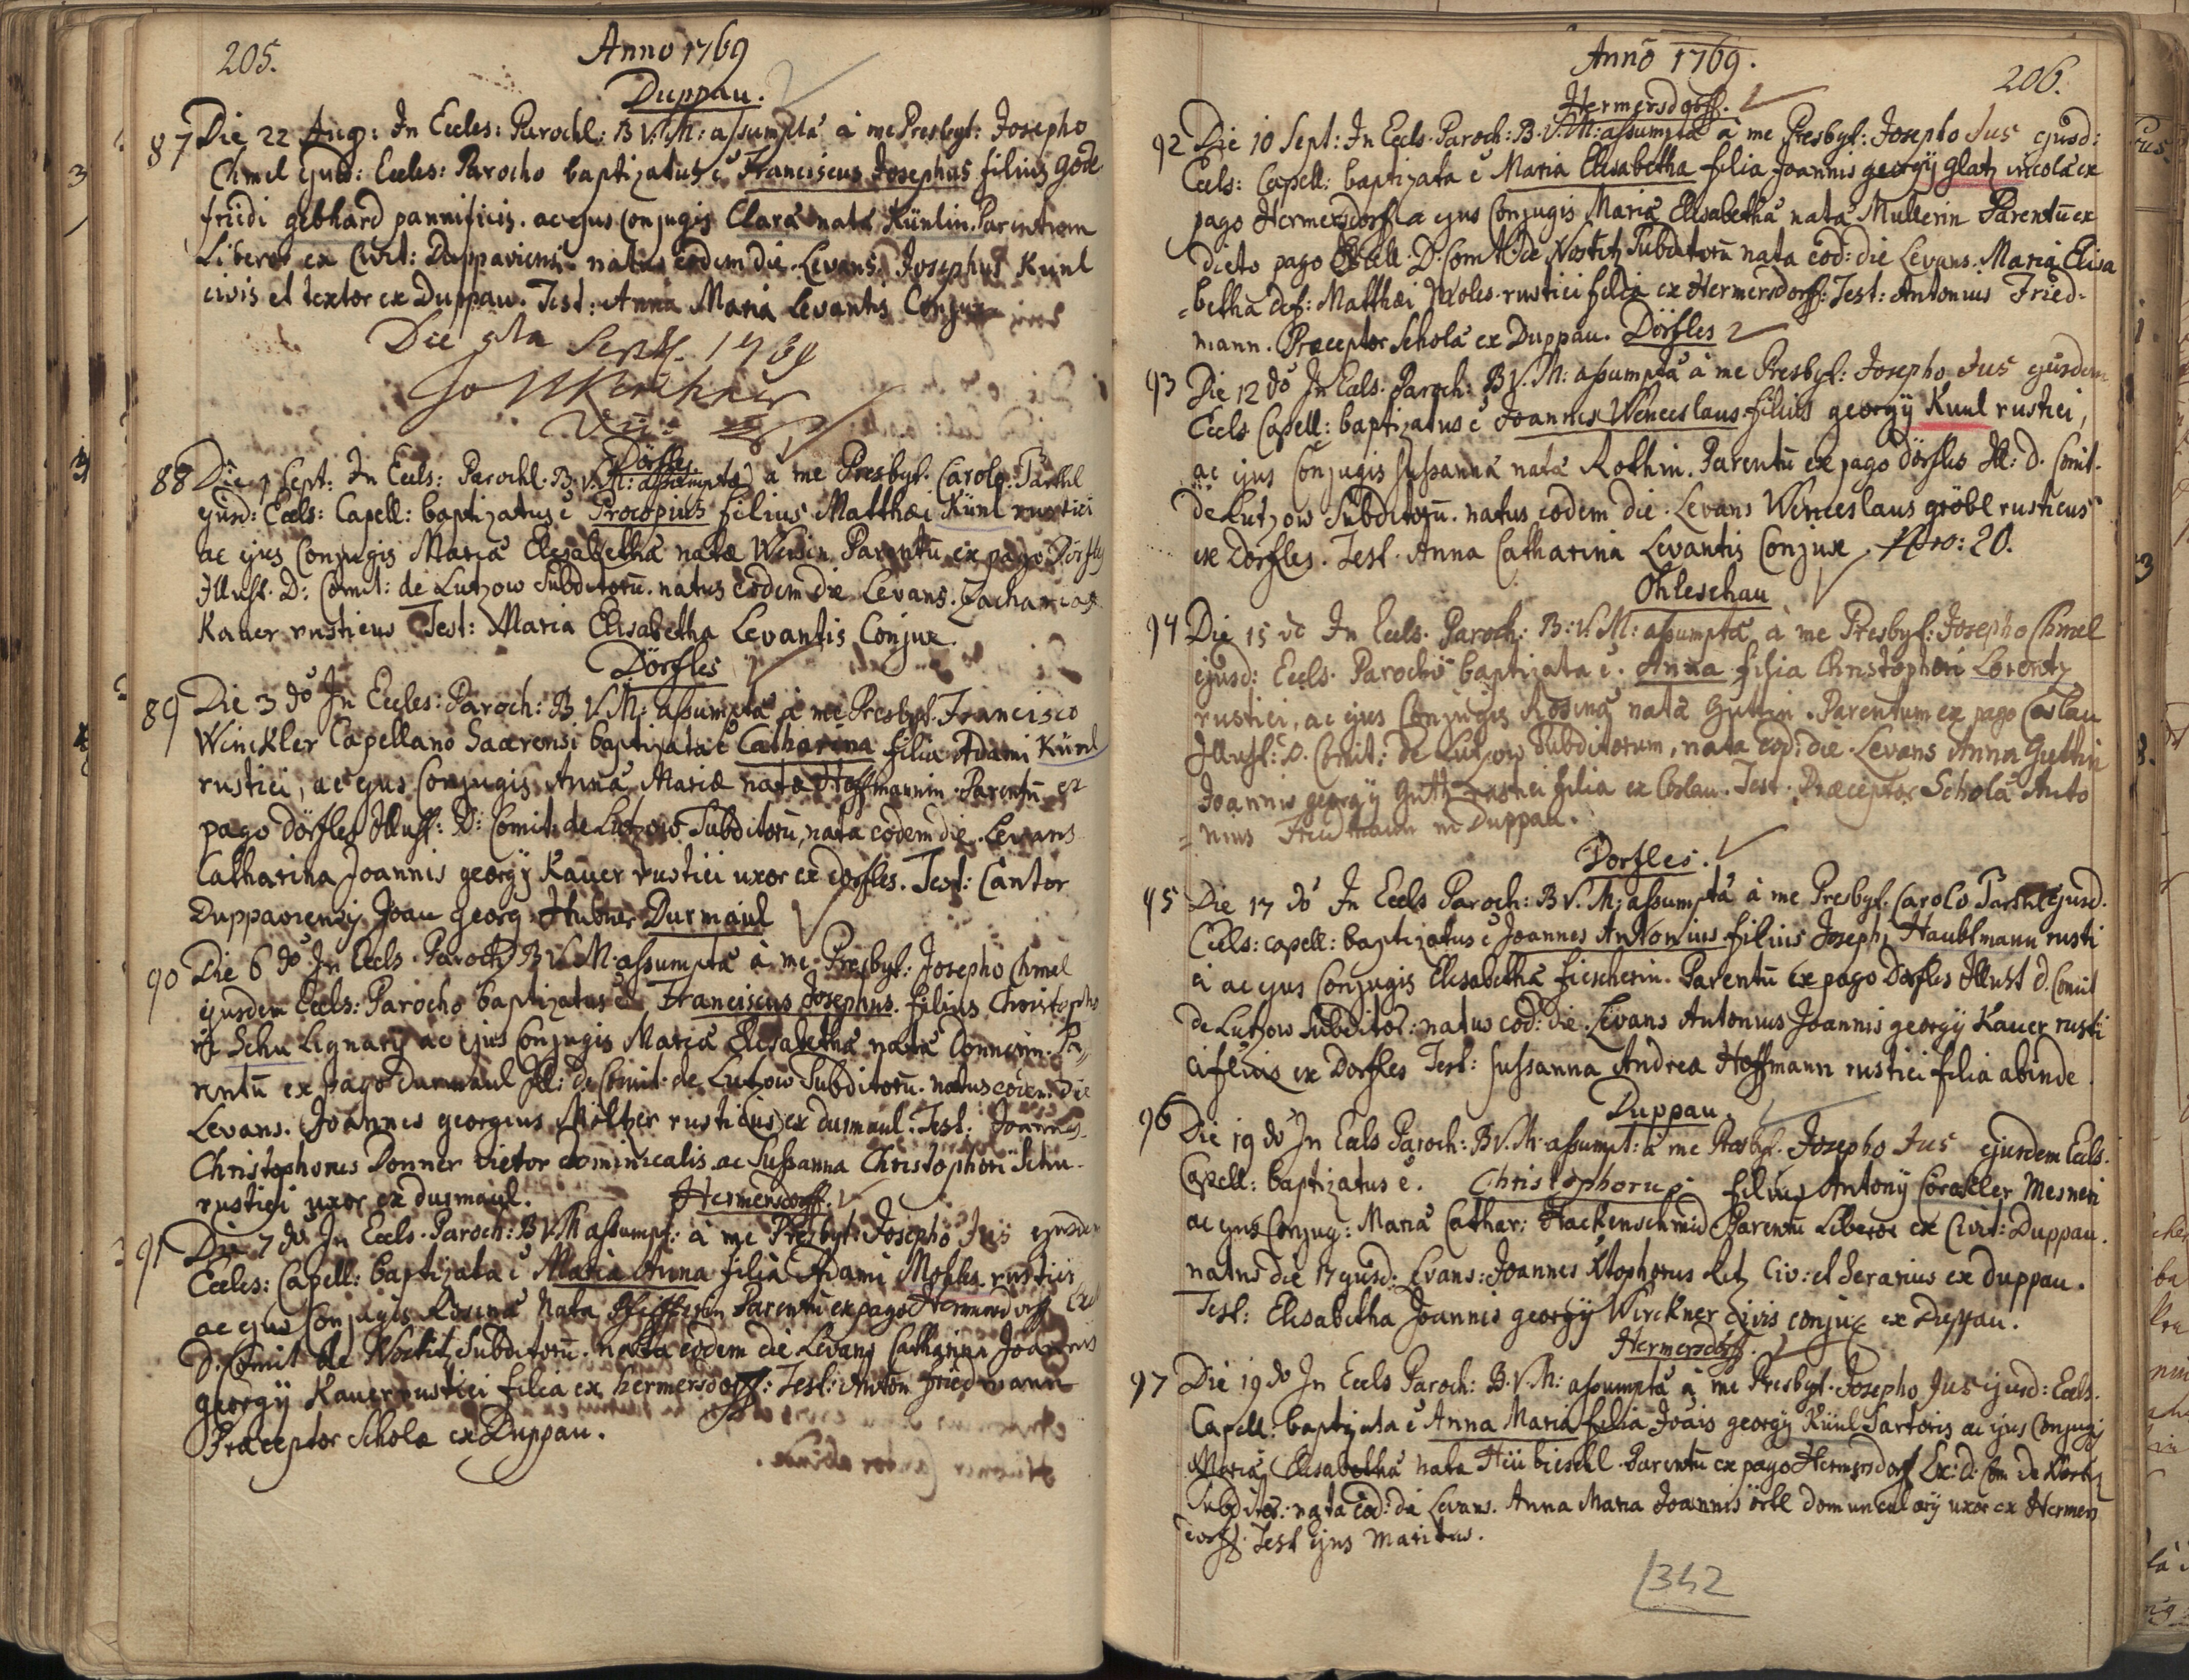 205.
Anno 1769
Duppau.
87 Die 22 Aug: In Eccles: Parochl: B V. M: assumptâ â me Presbyt: Josepho
Chmel ejusd: Eccles: Parocho baptizatus ẽ Franciscus Josephus filius Gode
fridi gebhard pannificis. ac ejus Conjugis Clarâ natâ Künlin. Parentum
Liberor ex Civit: Duppaviensi. natus eodem die. Levans. Josephus Künl
civis et textor ex Duppau. Test: Anna Maria Levantis Conjux
Die 9bra Sept. 1939
Vid:
Dörfles.
88 Die 1 Sept: In Eccls: Parochl. B. V. M: assumptâ â me Presbyt. Carolo Parthl
ejusd: Eccls: Capell: baptizatus ẽ Procopius filius Matthæi Künl rustici
ac ejus Conjugis Mariâ Elisabethâ natæ Parentũ ex pago Dörfles
Illust. D: Comit: de Lutzow Subditorũ. natus eodem die Levans: Zacharias
Kauer rusticus Test: Maria Elisabetha Levantis Conjux.
Dörfles
89 Die 3 dõ In Eccles: Paroch: B. V. M: assumptâ â me Presbyt. Francisco
Winckler Capellano Saarensi baptizata ẽ Catharina filia Adami Künl
rustici, ac ejus Conjugis Annâ Mariæ natæ Hoffmannin. Parentũ ex
pago Dörfles Illust: D: Comit: de Lutzow Subditorũ, nata eodem die. Levans
Catharina Joannis georgÿ Kauer rustici uxor ex dörfles. Test: Cantor
Duppaviensis Joan georg Hubner Durmaul
90 Die 6 dõ In Eccls. Paroch B V. M. assumptâ â me. Presbyt: Josepho Chmel
ejusdem Eccls: Parocho baptizatus ẽ Franciscus Josephus. filius Christopho
ri Schu Lignarÿ ac ejus Conjugis Mariâ Elisabethâ natâ Donnerin. Pa=
rentũ ex pago durmaul Ill: D: Comit. de Lutzow Subditorũ. natus eodem die
Levans. Joannes georgius Möltzer rusticus ex durmaul. Test: Joannes
Christophorus Donner vietor dominicalis. ac Sussanna Christophori Schu.
rustici uxor ex durmaul.
Hermersdorff.
91 Die 7 dõ. In Eccls. Paroch: B V M assumpt: â me Presbyt: Josepho Jus ejusdem
Eccles: Capell: baptizata ẽ Maria Anna filia Adami Mohles rustici
ac ejus Conjugis Rosinâ Nata Pfeifferin Parentũ ex pago Hermersdorff
D. Comit de Nostitz Subditorũ. nata eodem die Levans Catharina Joannis
georgÿ Kauer rustici filia ex hermersdorff: Test: Anton friedmann
Præceptor Scholæ ex Duppau.
Anno 1769.
206.
Hermersdorff.
92 Die 10 Sept: In Eccls. Paroch: B. V. M: assumptâ â me Presbyt: Josepho Jus ejusd:
Eccls: Capell: baptizata ẽ Maria Elisabetha filia Joannis georgÿ Glatz incolæ ex
pago Hermersdorff ac ejus Conjugis Mariâ Elisabethâ natâ Mullerin Parentũ ex
dicto pago Excell. D. Comit. de Nostitz Subditorũ nata eod: die Levans. Maria Elisa
=betha def: Matthæi Woles. rustici filia ex Hermersdorff: Test: Antonius Fried=
mann. Præceptor Scholâ ex Duppau. Dörfles
93 Die 12 dõ In Eccls. Paroch: B V. M: assumptâ â me Presbyt: Josepho Jus ejusdem
Eccls Capell: baptizatus ẽ Joannes Wenceslaus filius georgÿ Kunl rustici,
ac ejus Conjugis Sussannâ natâ Rothin. Parentũ ex pago dörfles Ill: D. Comit.
de Lutzow Subditorũ. natus eodem die. Levans Wenceslaus gröbl rusticus
ex Dörfles. Test. Anna Catharina Levantis Conjux. Nro: 20.
Ohleschau
94 Die 15 dõ In Eccls. Paroch: B: V. M: assumptâ â me Presbyt: Josepho Chmel
ejusd: Eccls. Parocho baptizata ẽ. Anna filia Christophori Lorentz
rustici, ac ejus Conjugis Rosinâ natâ Guttin. Parentum ex pago Coslau
Illust: D. Comit: de Lutzow Subditorum, nata eod: die. Levans Anna Guttin
Joannis georgÿ Guth rustici filia ex Coslau. Test. Præceptor Scholâ Anto
=nius Friedmann in Duppau.
Dorfles.
95 Die 17 dõ In Eccls Paroch: B V. M: assumptâ â me Presbyt. Carolo Parthl ejusd.
Eccls: capell: baptizatus ẽ Joannes Antonius filius Josephi Haublmann rusti
ci ac ejus Conjugis Elisabethâ fiescherin. Parentũ ex pago Dörfles Illust D. Comit
de Lutzow Subditor: natus eod: die. Levans Antonius Joannis georgÿ Kauer rusti
ci filius ex Dorfles Test: Sussanna Andrea Hoffmann rustici filia abinde.
Duppau.
96 Die 19 dõ In Eccls Paroch: B V. M. assumpt: â me Presbyt. Josepho Jus ejusdem Eccls.
Capell: baptizatus ẽ. Christophorus filius Antonÿ Mesneri
ac ejus Conjug: Mariâ Cathar: Hackenschmid Parentũ Liberor ex Civit: Duppau.
natus die 17 ejusd: Levans: Joannes Xtophorus Letz Civ: et Serarius ex duppau.
Test: Elisabetha Joannis georgÿ Wirckner civis conjux ex Duppau.
Hermersdorff.
97 Die 19 dõ In Eccls Paroch: B. V. M: assumptâ â me Presbyt. Josepho Jus ejusd: Eccls.
Capell: baptizata ẽ Anna Maria filia Joãis georgÿ Künl Sartoris ac ejus Conjugis
Mariâ Elisabethâ nata Hüübieschl. Parentũ ex pago Hermersdorff Ex: D: Com de Nostitz
Subditor. nata eod: die Levans. Anna Maria Joannis örtl domuncularÿ uxor ex Hermers
dorff. Test ejus maritus.
1342